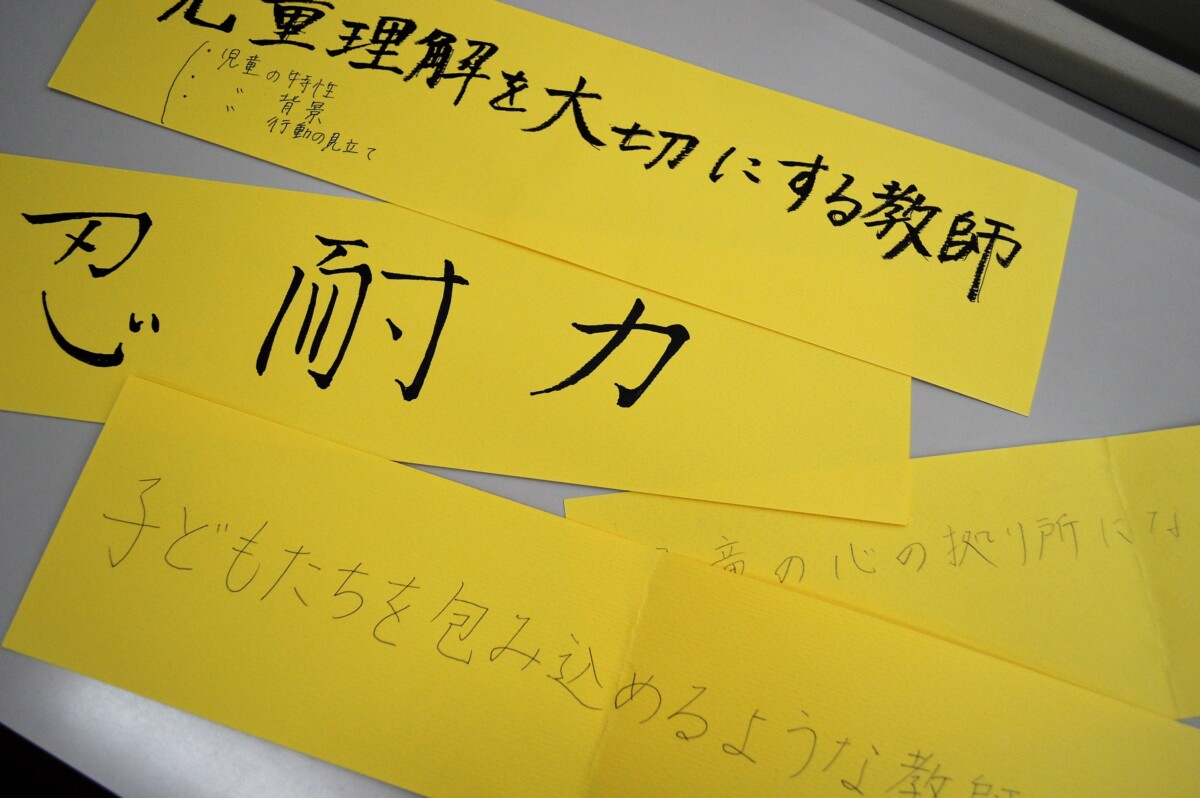 児童理解を大切にする教師
・児童の特性
・〃 背景
・〃 行動の見立て
忍耐力
童の心の拠り所にな
子どもたちを包み込めるような教師